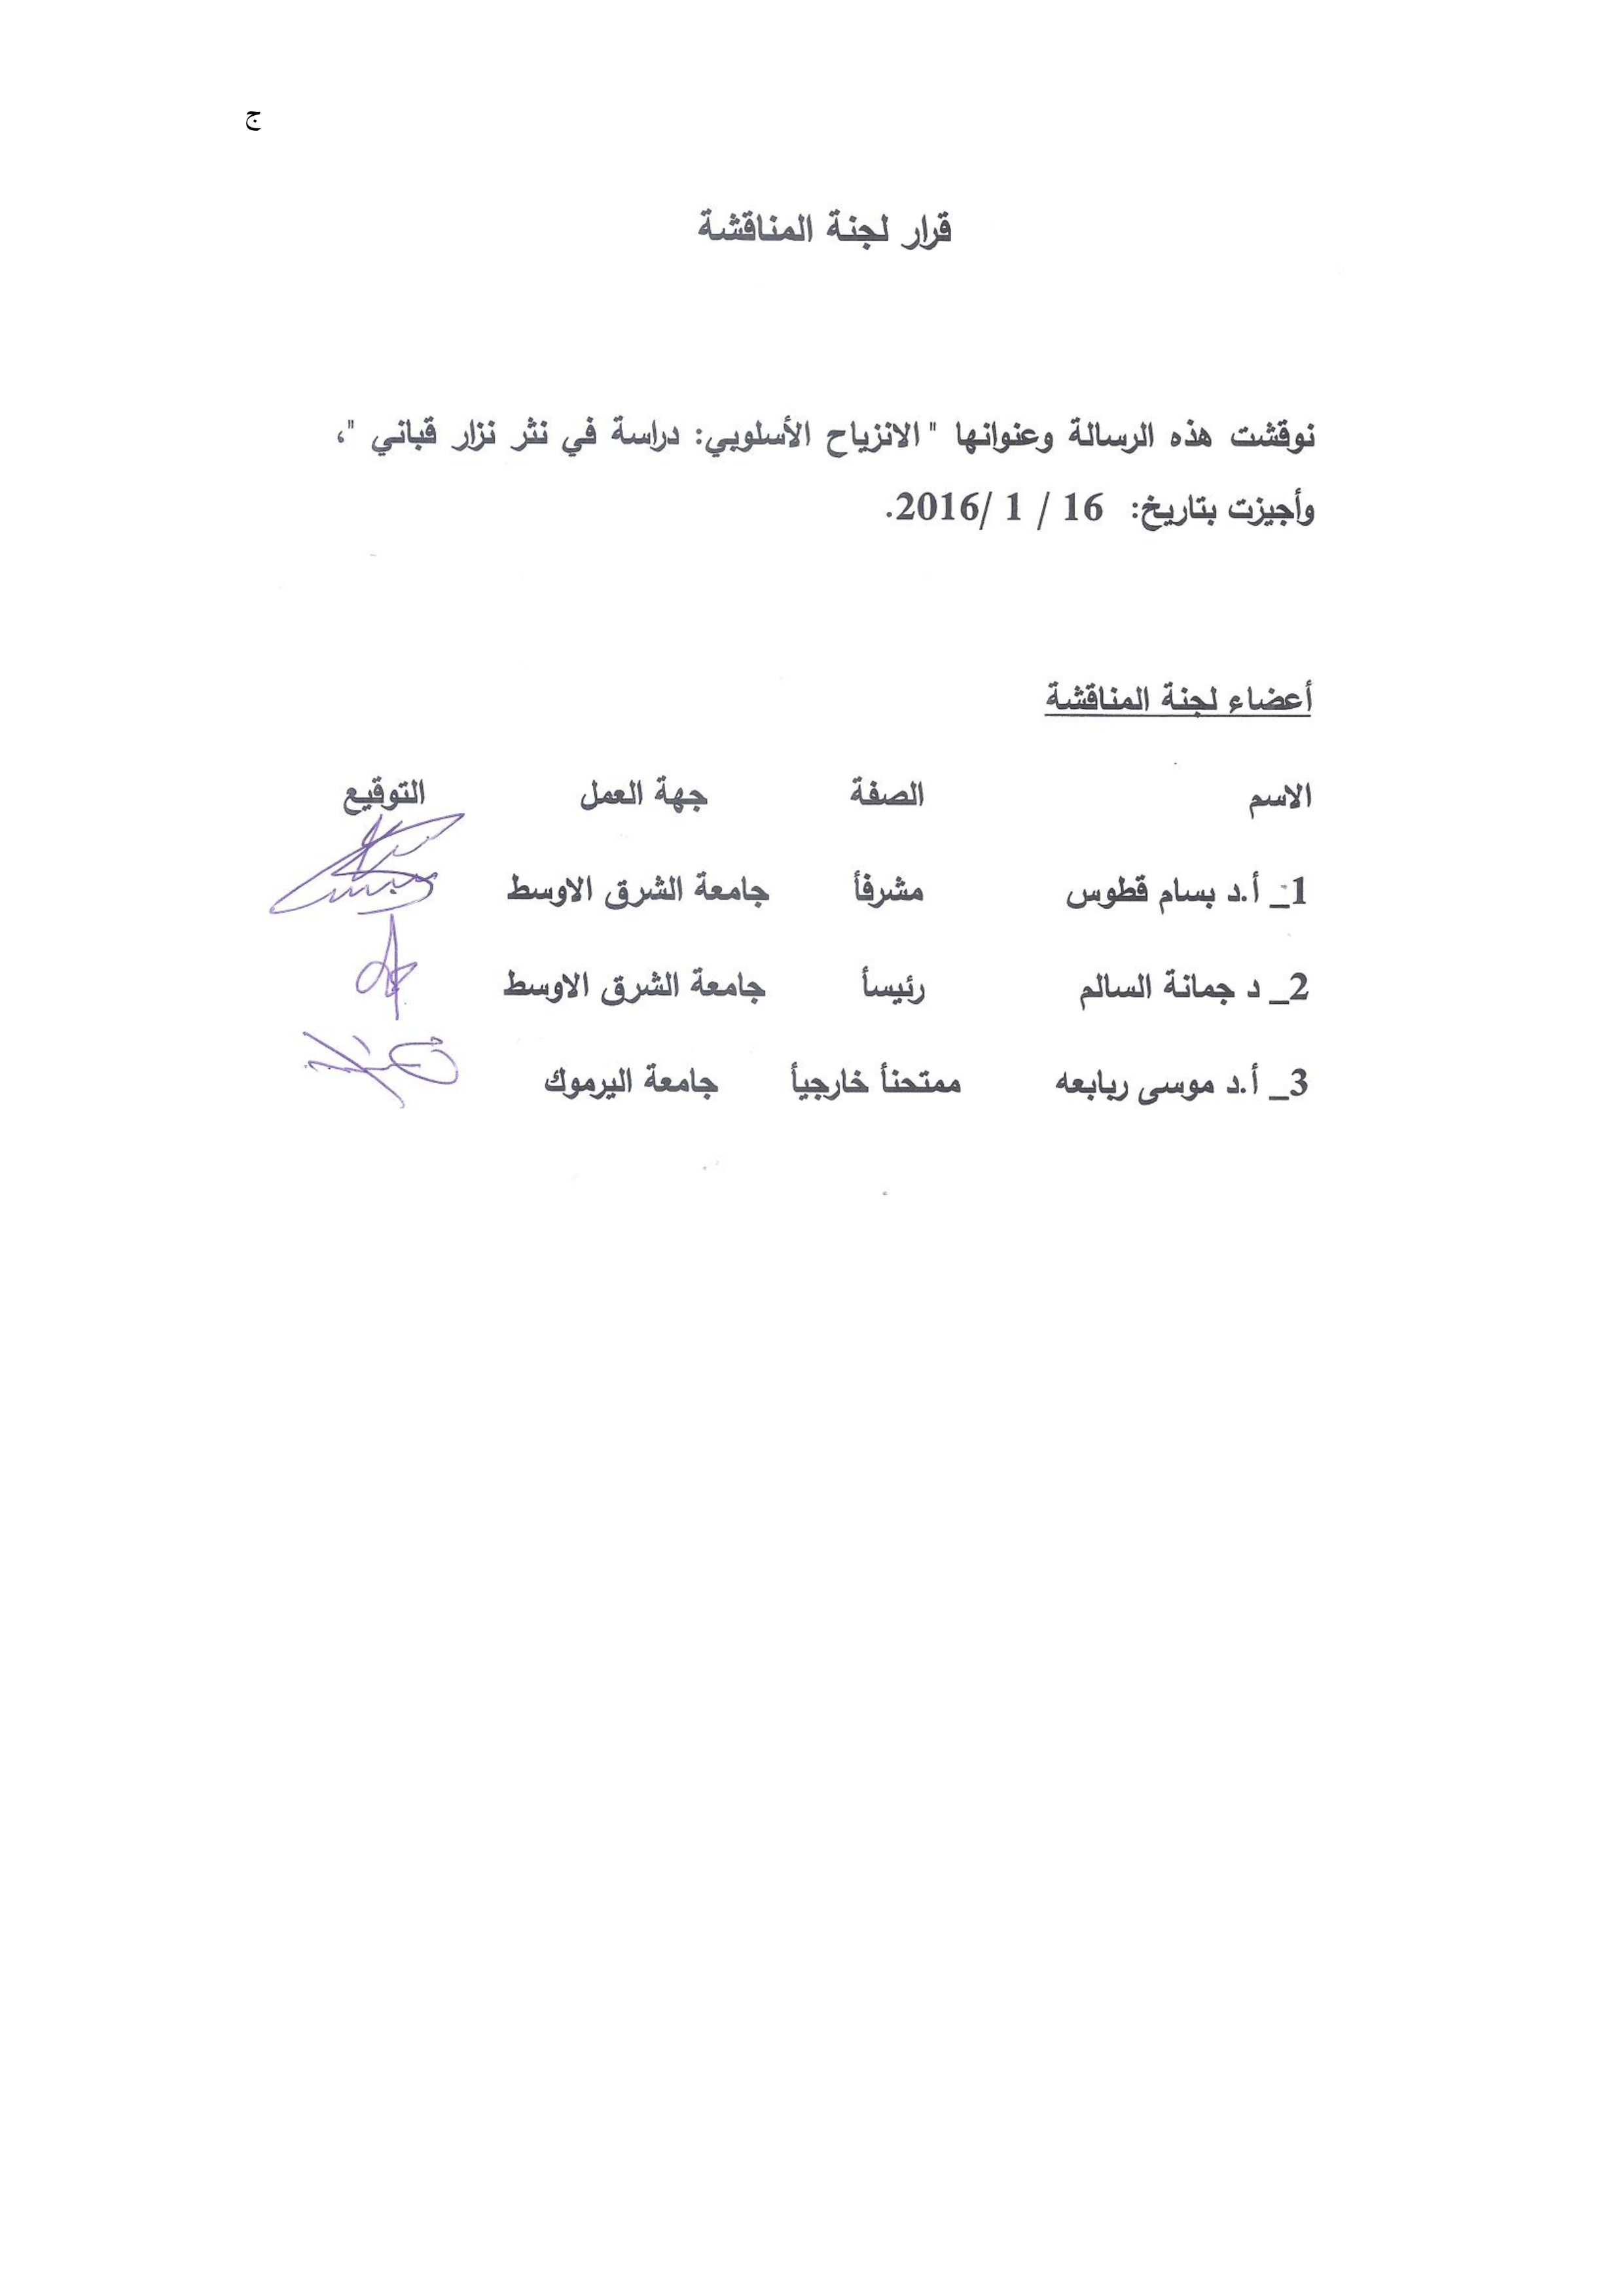 ج
قرار لجنة المناقشة
نوقشت هذه الرسالة وعنوانها " الانزياح الأسلوبي: دراسة في نثر نزار قباني "،
وأجيزت بتاريخ: 16 / 1 /2016.
أعضاء لجنة المناقشة
الاسم الصفة جهة العمل التوقيع
1_ أ.د بسام قطوس مشرفأ جامعة الشرق الاوسط
2_ د جمانة السالم رئيسأ جامعة الشرق الاوسط
3_ أ.د موسى ربابعه ممتحنأ خارجيأ جامعة اليرموك